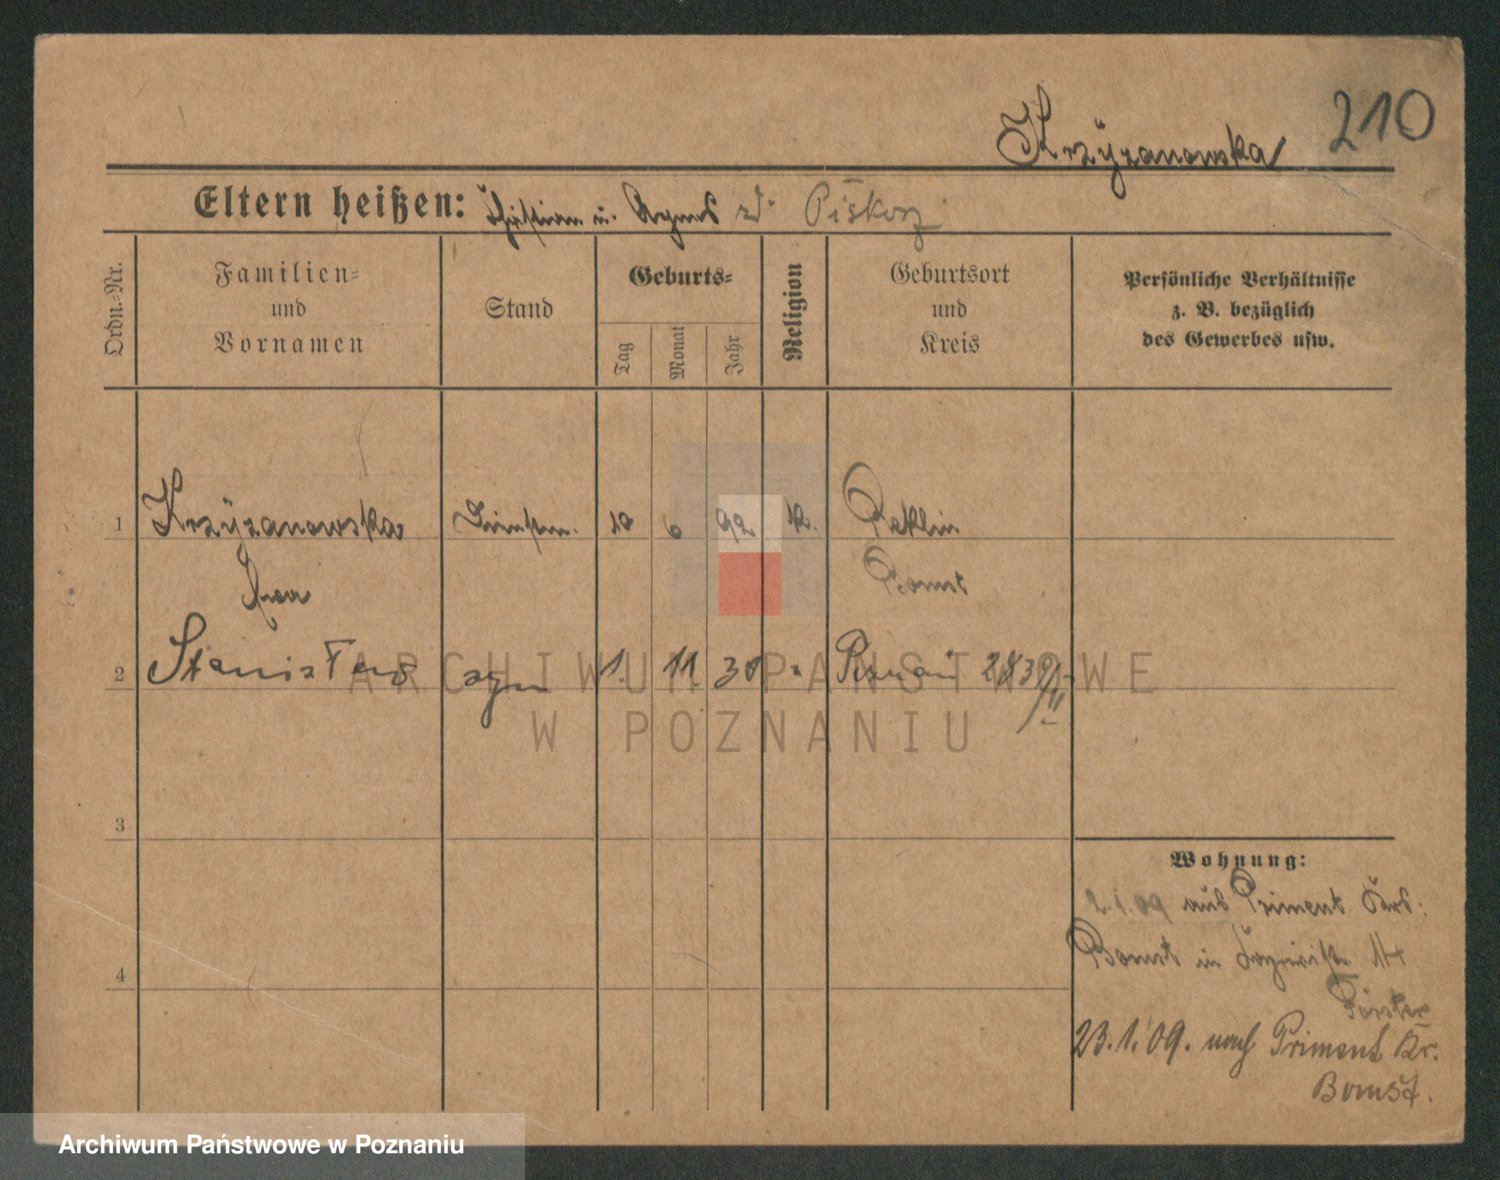 210
Krzÿzanowska
Eltern heißen: Christian u. Agnes zd. Piskorz
Ordn.-Nr.
Familien- und Vornamen
Stand
Geburts-
Tag
Monat
Jahr
Religion
Geburtsort und Kreis
Persönliche Verhältnisse z. B. bezüglich des Gewerbes usw.
1 Krzÿzanowska 10 6 92 k.
Bomst
2 Stanisław syn 1. 11 30 " Poznań
3
4
Wohnung:
2.1.09 aus Priment Krs.
Bomst in 14
Förster
23.1.09. nach Priment Kr.
Bomst.
ARCHIWUM PAŃSTWOWE
W POZNANIU
Archiwum Państwowe w Poznaniu